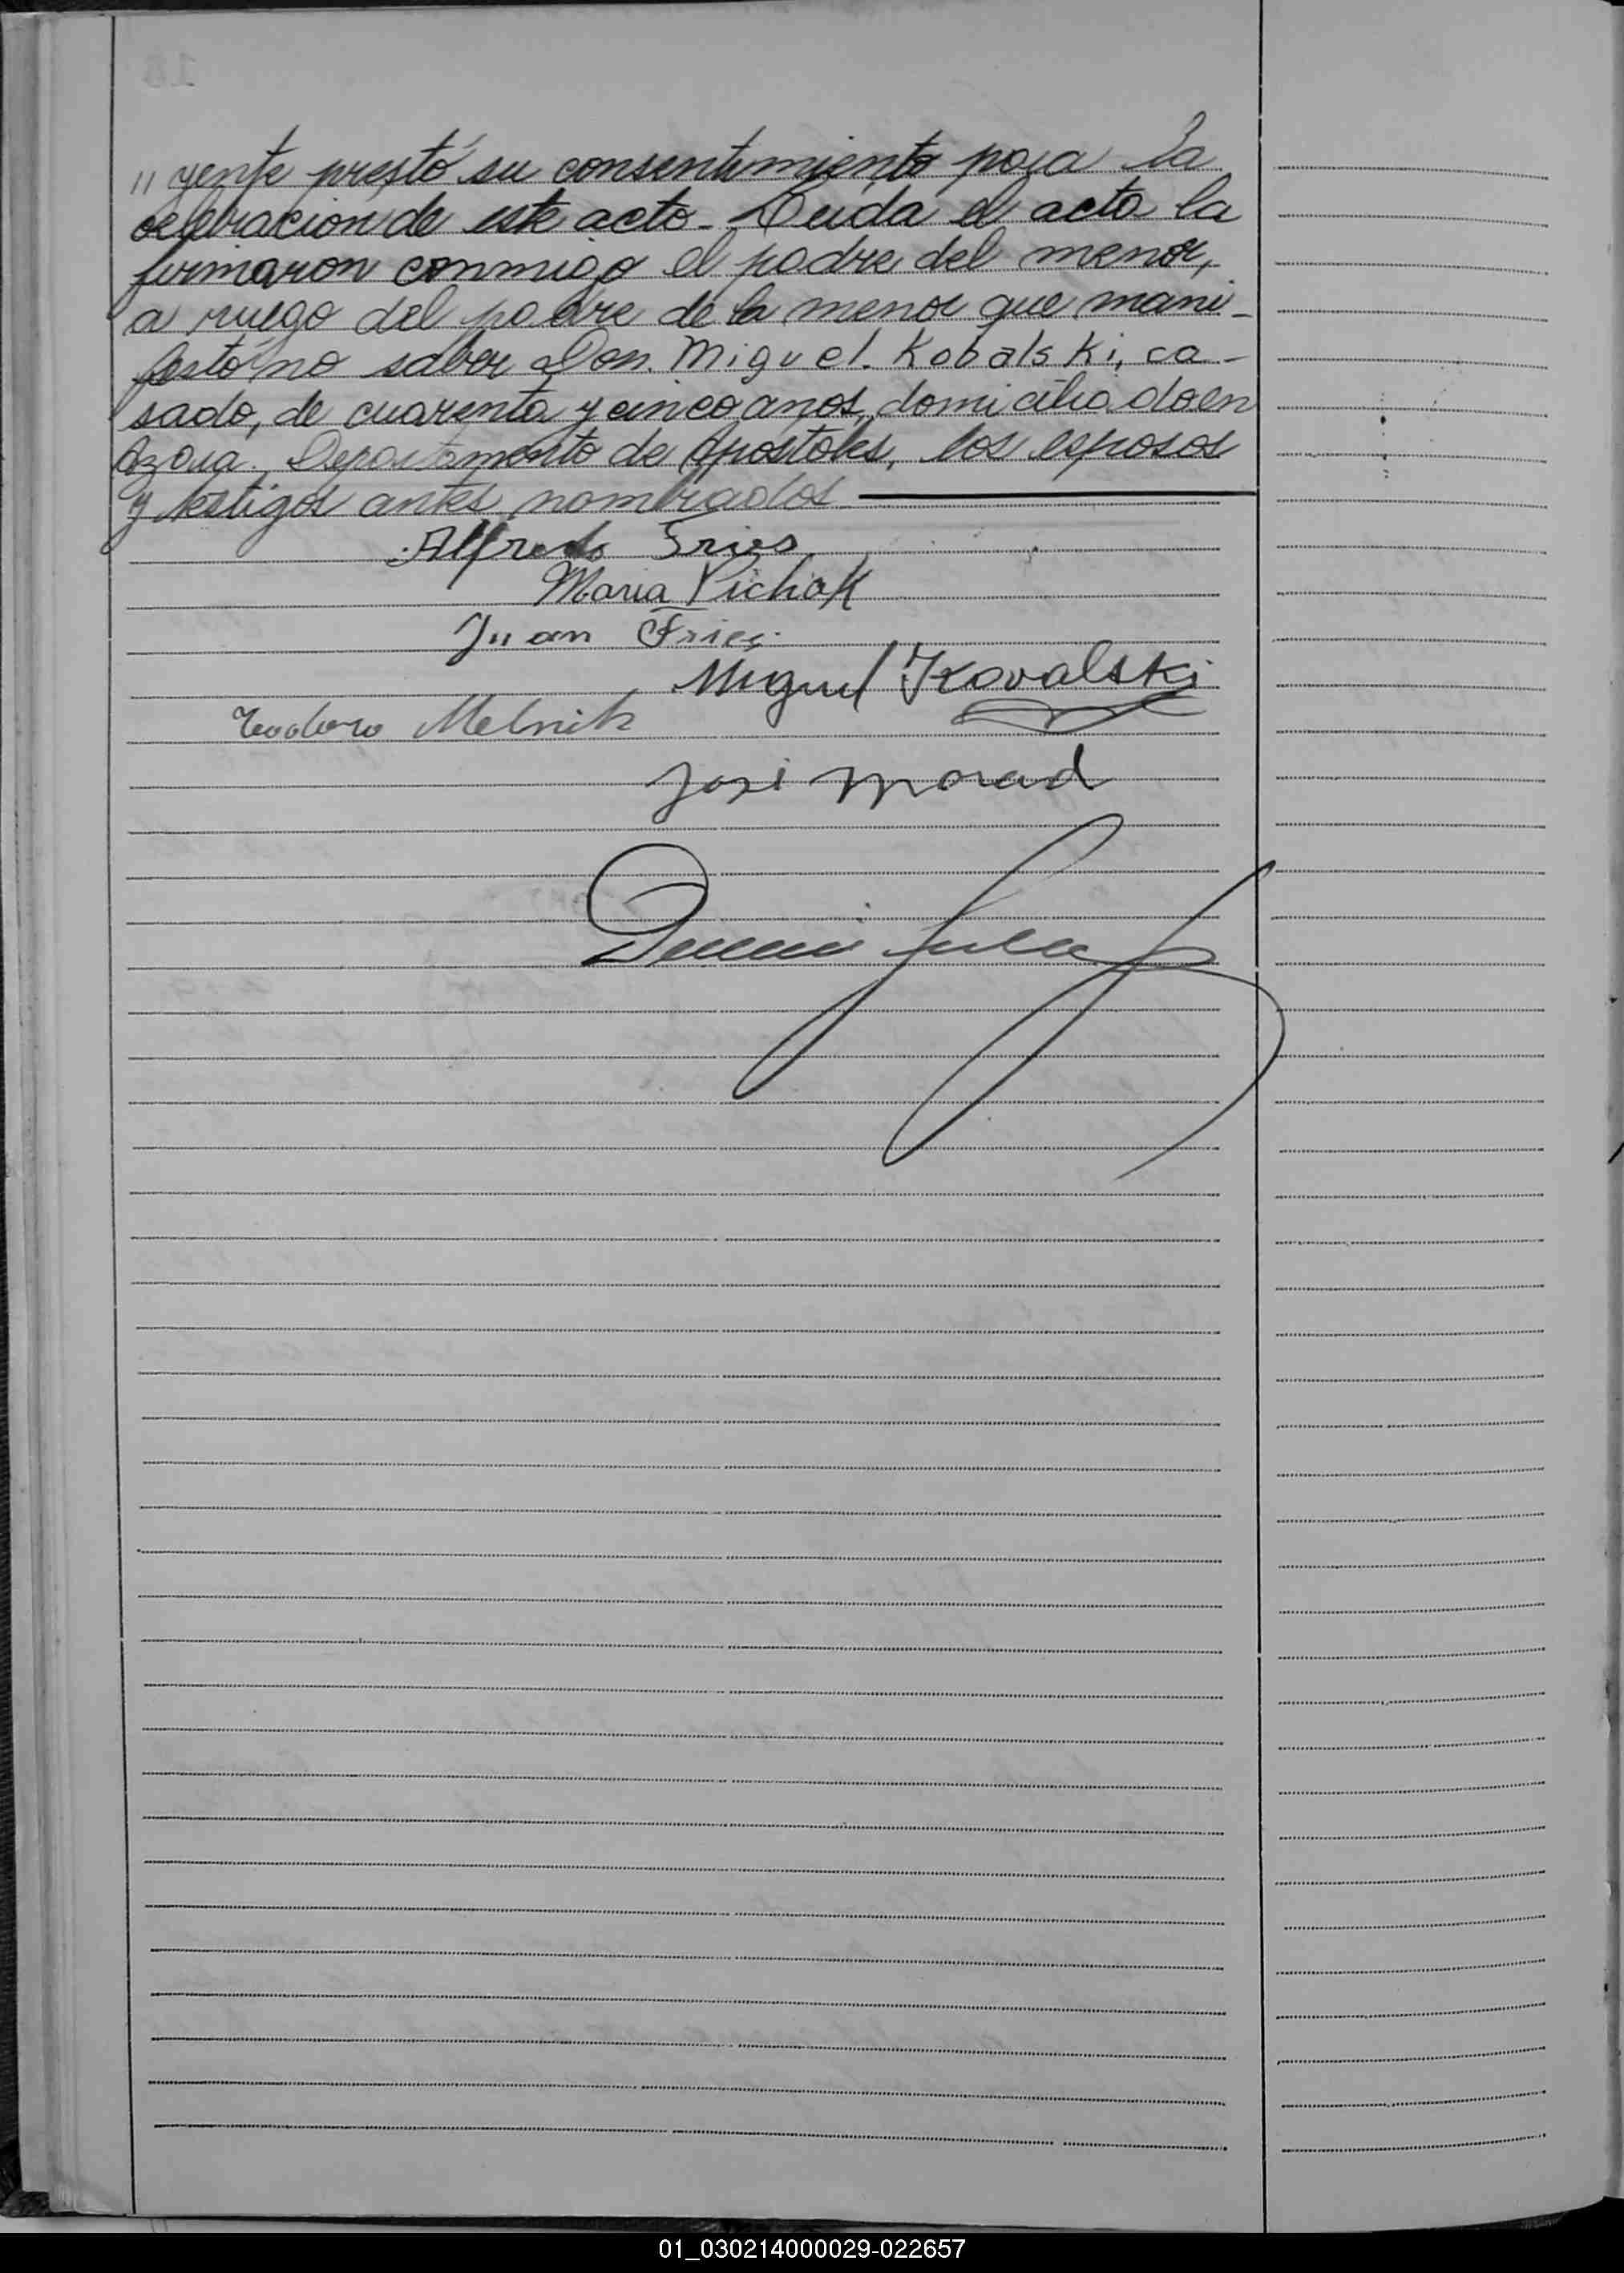 " yente prestó su consentimiento para la
celebracion de este acto - Leida el acta la
firmaron conmigo el padre del menor,
a ruego del padre de la menor que mani-
festó no saber Don. Miguel. Kobalski, ca-
sado, de cuarenta y cinco años, domiciliado en
Azara, Departamento de Apostoles, los esposos
y testigos antes nombrados
Alfredo Fries
Maria Pichak
Juan Fries
Miguel Kovalski
Teodoro Melnik
José Morad
01_030214000029-022657